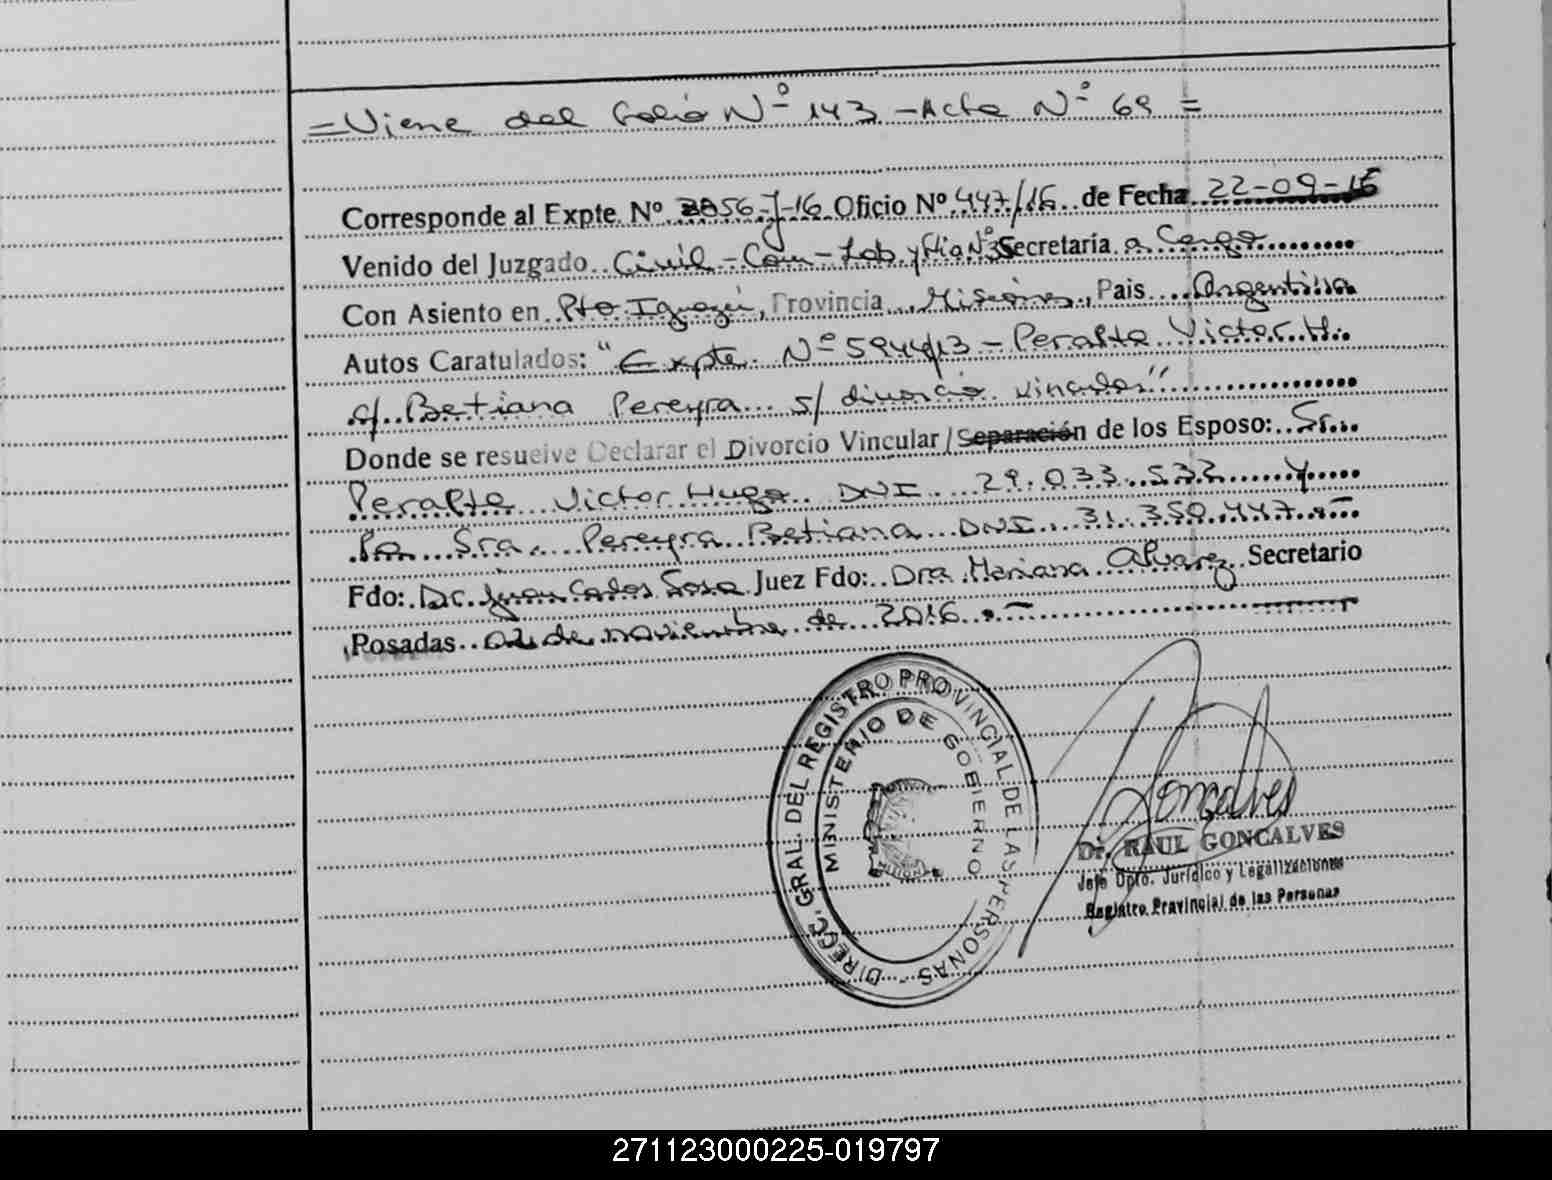 = Viene del folio Nº 143 - Acta Nº 69 =
Corresponde al Expte. Nº 3856-J-16 Oficio Nº 447/16 de Fecha 22-09-16
Venido del Juzgado Civil - Com - Lab. y Flia Nº3 Secretaría a Cargo
Con Asiento en Pto Iguazú, Provincia Misiones, Pais Argentina
Autos Caratulados: "Expte. Nº 5944/13 - Peralta Victor H.
c/ Betiana Pereyra s/ divorcio vincular"
Donde se resuelve Declarar el Divorcio Vincular/Separación de los Esposo: Sr.
Peralta Victor Hugo DNI 29.033.532 y
la Sra. Pereyra Betiana DNI. 31.350.447.-
Fdo: Dr. Juan Carlos Sosa Juez Fdo: Dra Mariana Alvarez Secretario
Posadas 02 de noviembre de 2016.-
DIRECC. GRAL. DEL REGISTRO PROVINCIAL DE LAS PERSONAS
MINISTERIO DE GOBIERNO
Goncalves
Dr. RAUL GONCALVES
Jefe Dpto. Jurídico y Legalizaciones
Registro Provincial de las Personas
271123000225-019797